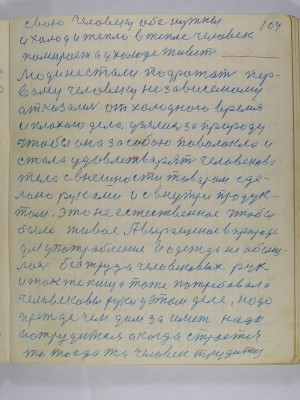 свою человеку обе нужны 164
и холод и тепло в тепле человек
помирает а у холоде живет.
Люди не стали подрожат пер-
вому человеку независемому
отказалис от холодного время
и плохого дела. узялис за природу
чтобы она за собою поволокла и
стала удовлетварят человеково
тело с внешности товаром зде-
лано руками и с внутри продук-
том. Это не естественное чтобы
было живое, А
для употребление И одежда не
лас без труда человековых рук
а также пища тоже потребовала
человековы руки у этом деле, надо
прежде чем дом заимет надо
потрудится а когда строется
то тогда то человек трудится